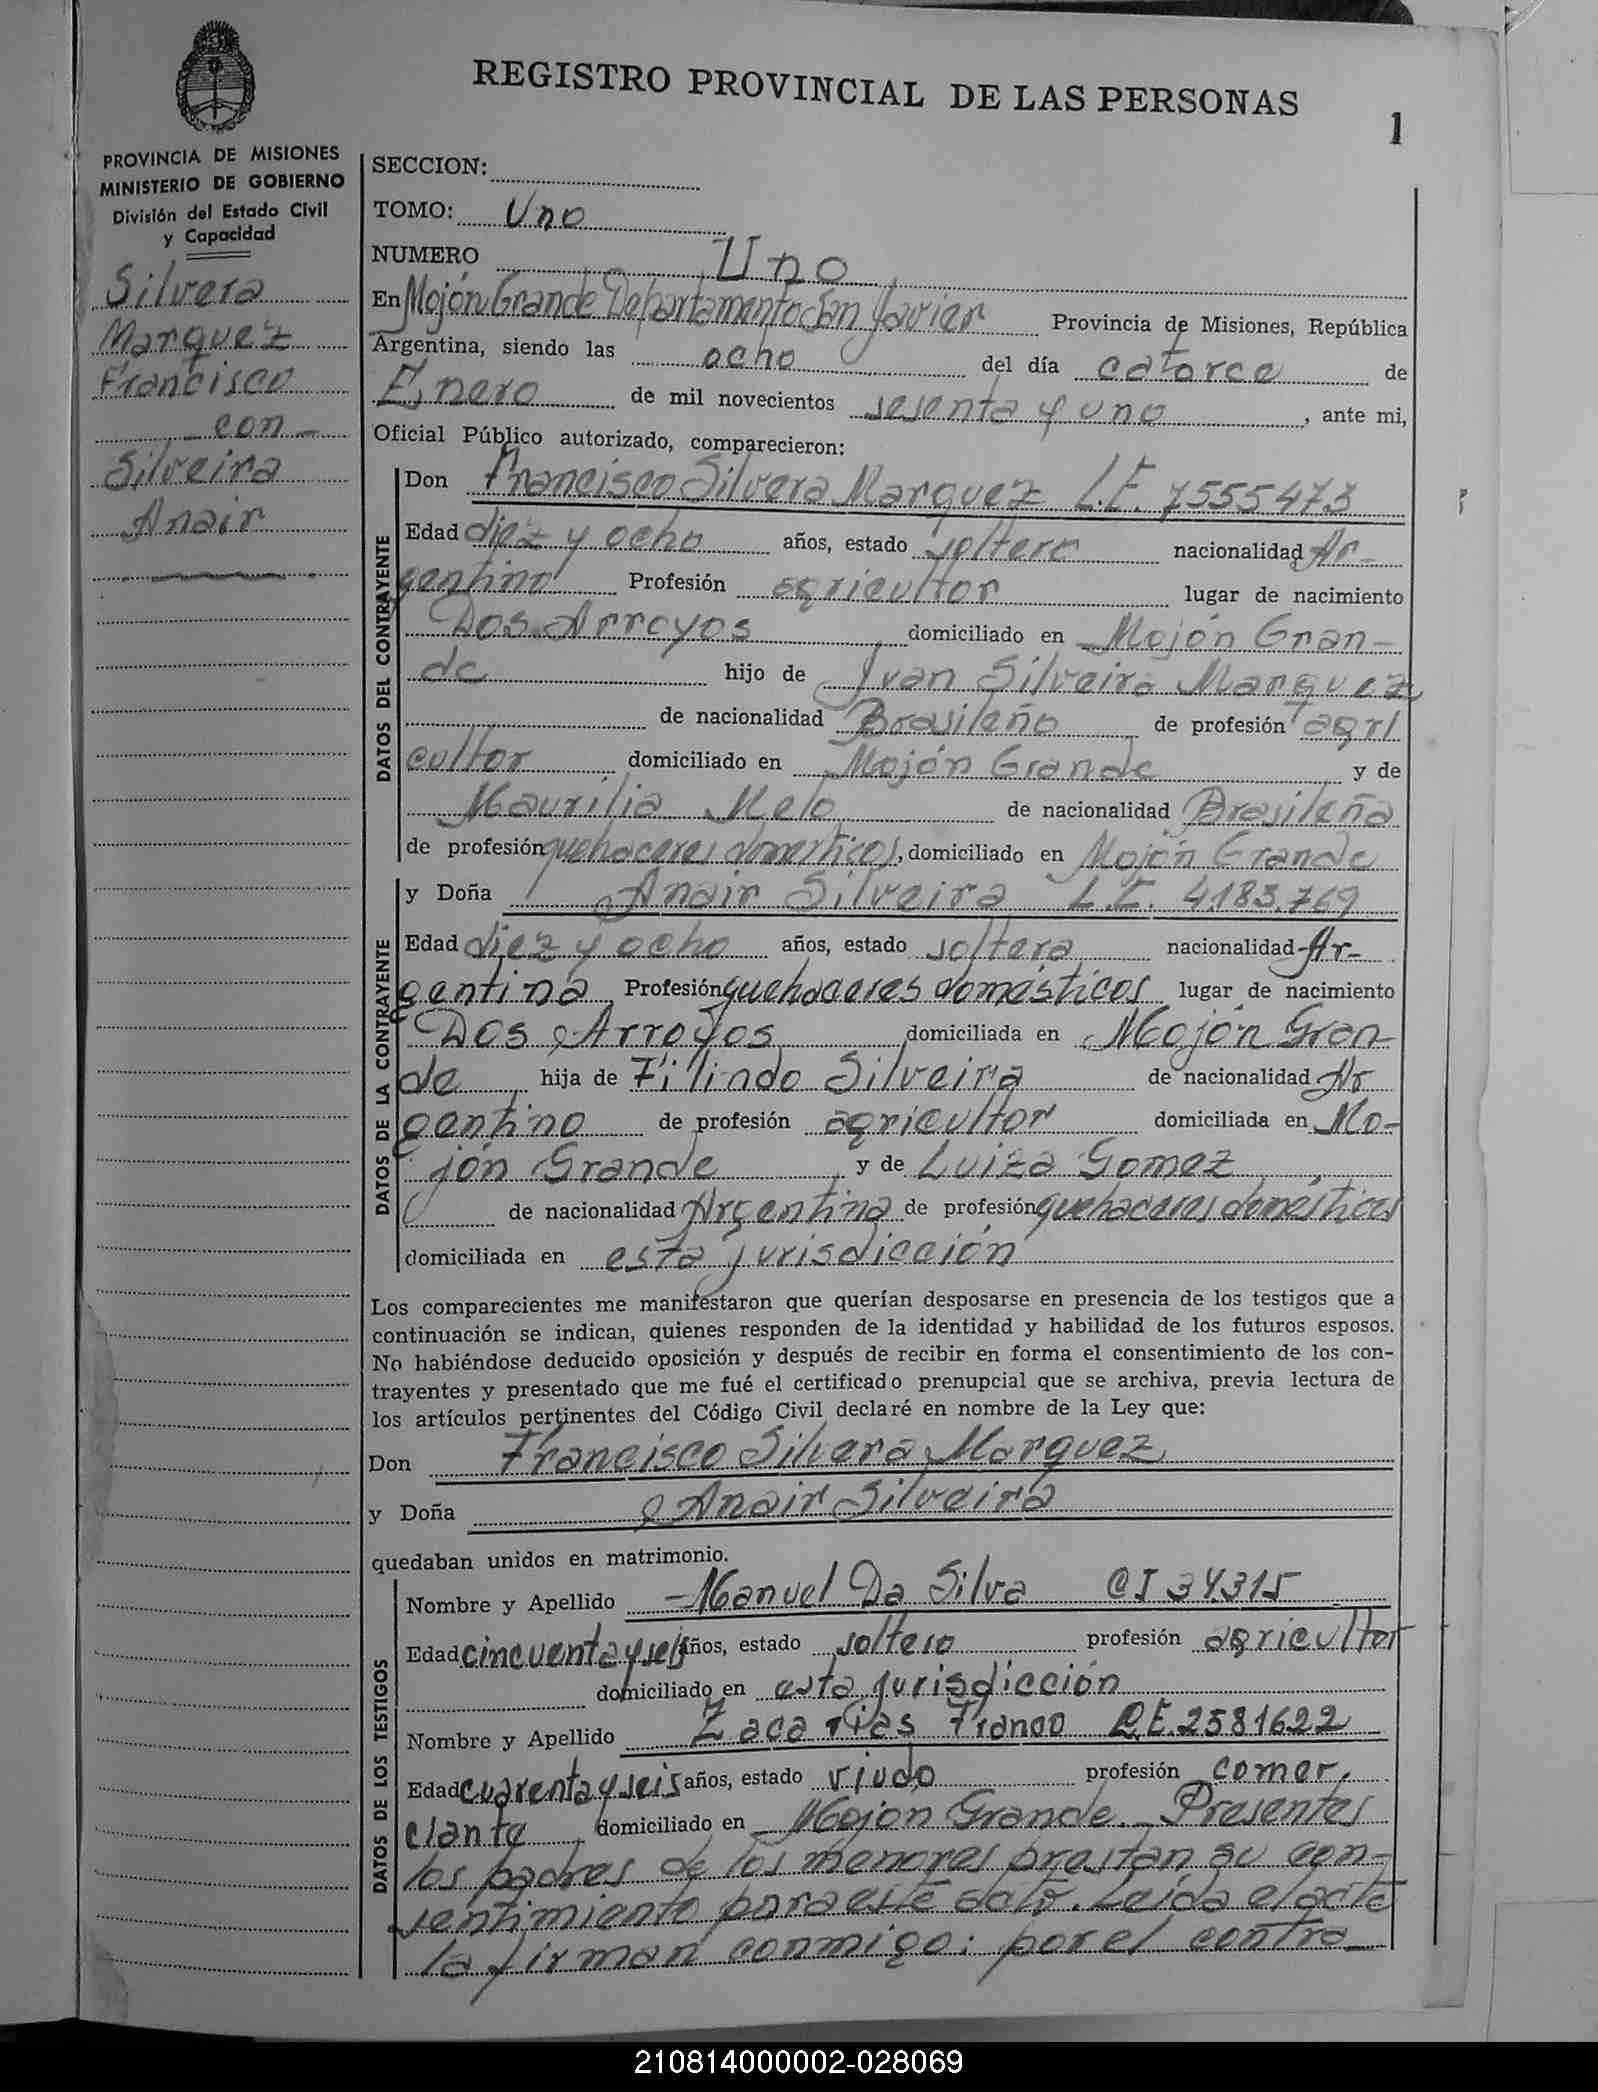 REGISTRO PROVINCIAL DE LAS PERSONAS
1
PROVINCIA DE MISIONES
MINISTERIO DE GOBIERNO
División del Estado Civil
y Capacidad
Silvera
Marquez
Francisco
con
Silveira
Anair
SECCION:
TOMO: Uno
NUMERO Uno
En Mojón Grande Departamento San Javier Provincia de Misiones, República
Argentina, siendo las ocho del día catorce de
Enero de mil novecientos sesenta y uno, ante mi,
Oficial Público autorizado, comparecieron:
DATOS DEL CONTRAYENTE
Don Francisco Silvera Marquez L.E. 7555473
Edad diez y ocho años, estado soltero nacionalidad Ar-
gentino Profesión agricultor lugar de nacimiento
Dos Arroyos domiciliado en Mojón Gran-
de hijo de Ivan Silveira Marquez
de nacionalidad Brasileño de profesión agri
cultor domiciliado en Mojón Grande y de
Maurilia Melo de nacionalidad Brasileña
de profesión quehaceres domesticos, domiciliado en Mojón Grande
DATOS DE LA CONTRAYENTE
y Doña Anair Silveira L.C. 4.183.769
Edad diez y ocho años, estado soltera nacionalidad Ar-
gentina Profesión quehaceres domésticos lugar de nacimiento
Dos Arroyos domiciliada en Mojón Gran-
de hija de Filindo Silveira de nacionalidad Ar
gentino de profesión agricultor domiciliada en Mo-
jón Grande y de Luiza Gomez
de nacionalidad Argentina de profesión quehaceres domésticos
domiciliada en esta jurisdicción
Los comparecientes me manifestaron que querían desposarse en presencia de los testigos que a
continuación se indican, quienes responden de la identidad y habilidad de los futuros esposos.
No habiéndose deducido oposición y después de recibir en forma el consentimiento de los con-
trayentes y presentado que me fué el certificado prenupcial que se archiva, previa lectura de
los artículos pertinentes del Código Civil declaré en nombre de la Ley que:
Don Francisco Silvera Marquez
y Doña Anair Silveira
quedaban unidos en matrimonio.
DATOS DE LOS TESTIGOS
Nombre y Apellido Manuel Da Silva CI 34.315
Edad cincuenta y seis años, estado soltero profesión agricultor
domiciliado en esta jurisdicción
Nombre y Apellido Zacarías Franco L.E. 2581622
Edad cuarenta y seis años, estado viudo profesión comer,
ciante domiciliado en Mojon Grande. Presentes
los padres de los menores prestan su con-
sentimiento para este acto. Leida el acta
la firman conmigo: por el contra
210814000002-028069